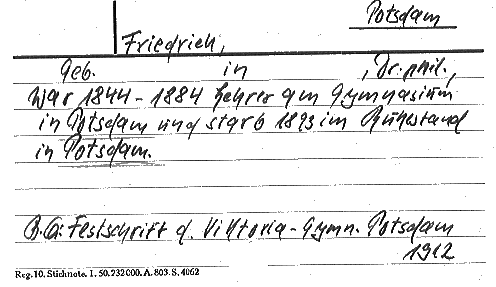 Potsdam
Friedrich,
Geb. in , Dr. phil.,
War 1844 - 1884 Lehrer am Gymnasium
in Potsdam und starb 1893 im Ruhestand
in Potsdam.
B. G: Festschrift d. Viktoria-Gymn. Potsdam
1912
Reg. 10. Stichnote. 1. 50. 232000. A. 803. S. 4062